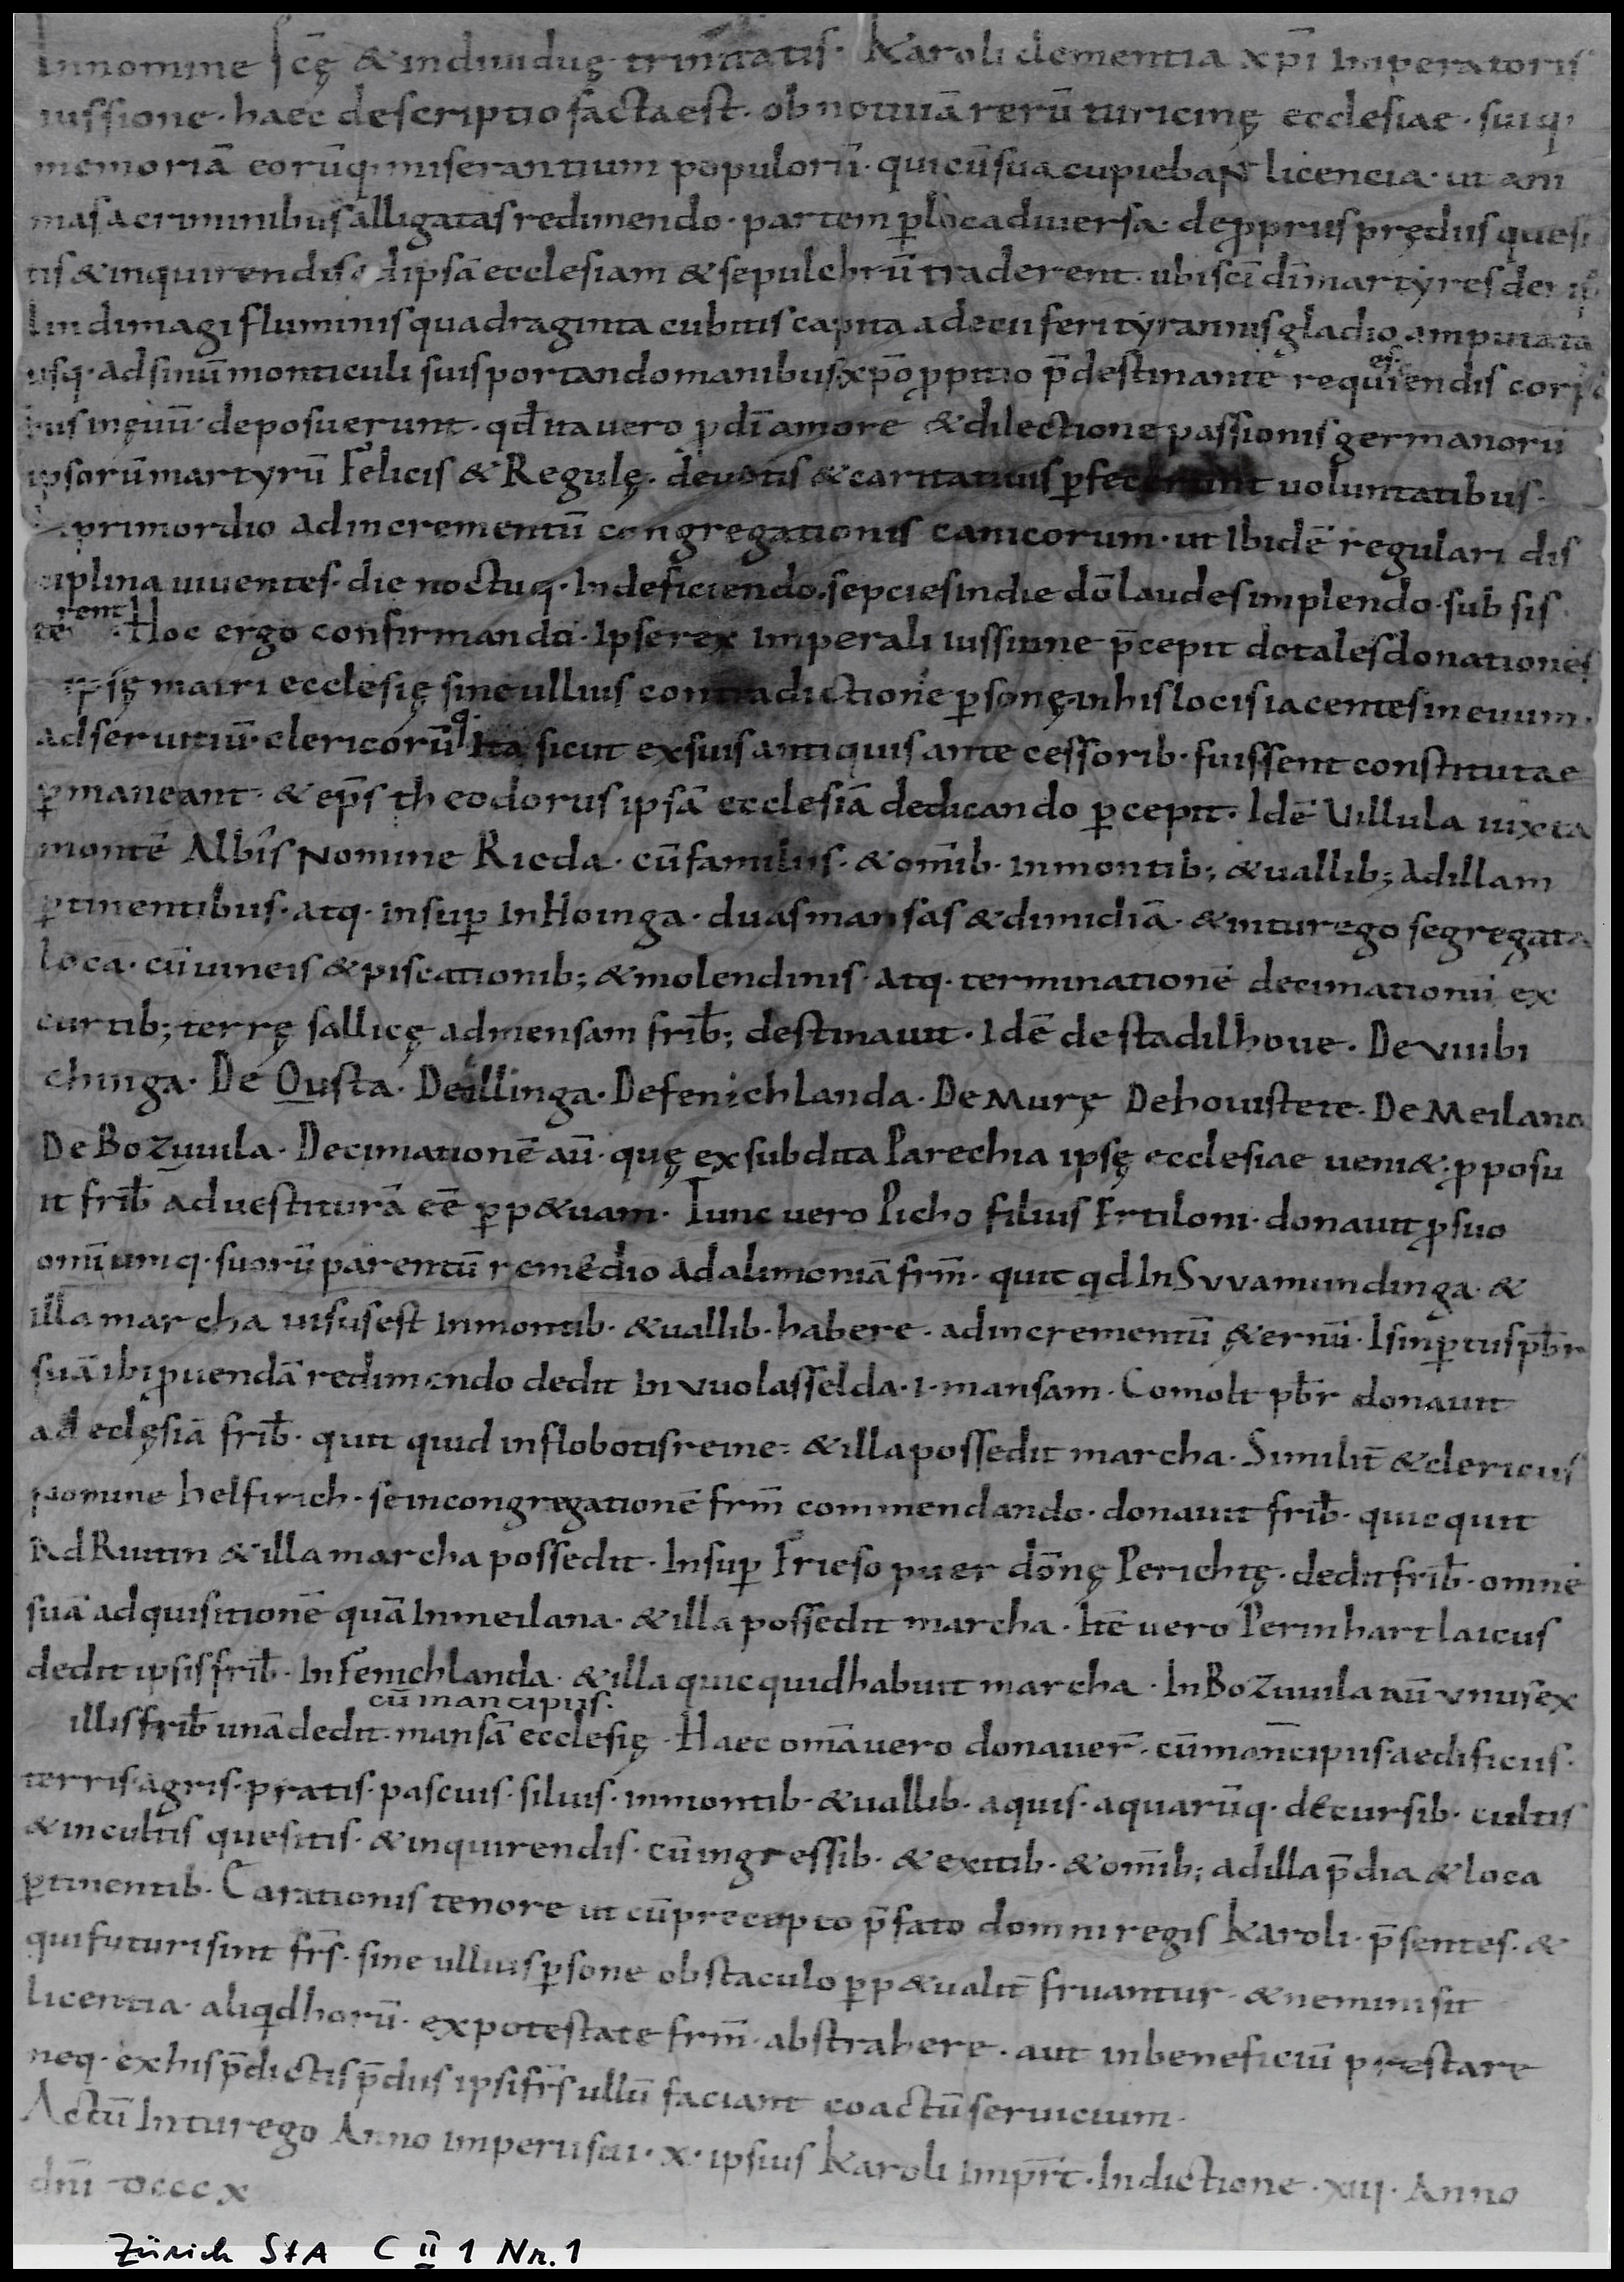 In nomine scę & indiuiduę trinitatis· Karoli clementia xpi Imperatoris
iussione· haec descriptio facta est· ob notitiā rerū turicinę ecclesiae· suiq;
memoriā eorūq; miserantium populorū· qui cū sua cupiebaNt licencia· ut ani
mas a criminibus alligatas redimendo· partem p loca diuersa· de ppriis prędiis quesi
tis & inquirendis ad ipsā ecclesiam & sepulchrū traderent· ubi sci di martyres de
lindimagi fluminis quadraginta cubitis capita a decii feri tyrannis gladio amputata
usq· ad sinū monticuli suis portando manibus xpo ppitio pdestinante requiescendis
inęuū· deposuerunt· qd ita uero p di amore & dilectione passionis germanorū
ipsorū martyrū Felicis & Regulę· deuotis & caritatiuis pfecerunt uoluntatibus·
primordio ad incrementū congregationis canicorum· ut Ibidē regulari dis
ciplina uiuentes· die noctuq· Indeficiendo· sepcies in die dō laudes implendo· sub sis
terent· Hoc ergo confirmando· Ipse rex Imperali iussione pcepit dotales donationes
ipsę matri ecclesię sine ullius contradictione psonę· in his locis iacentes in euum·
ad seruitiū· clericorū q; Ita sicut ex suis antiquis ante cessorib· fuissent constitutae
pmaneant· & eps theodorus ipsā ecclesiā dedicando pcepit· Idē Uillula iuxta
montē Albis Nomine Rieda· cū familiis· & omib· In montib; & uallib; Ad illam
ptinentibus· atq· in sup In Hoinga· duas mansas & dimidiā· & in turego segregata
loca· cū uineis & piscationib; & molendinis· atq· terminatione decimationū ex
curtib; terrę sallicę ad mensam frib; destinauit· Idē de stadilhoue· De vuibi
chinga· De Ousta· De illinga· De fenichlanda· De Murę De houistete· De Meilana
De Bozuuila· Decimationē aū· quę ex subdita Parechia ipsę ecclesiae ueni&· p posu
it frib ad uestiturā eē pp&uam· Tunc uero Picho filius Ertiloni· donauit p suo
omiumq· suorū parentū remedio ad alimoniā frm· quit qd In Svvamundinga· &
illa marcha uisus est In montib· & uallib· habere· ad incrementū &ernū· Isinptus pbr
suā ibi puendā redimendo dedit In vuolasselda· I· mansam· Comolt pbr donauit
ad eclęsiā frib· quit quid in flobotisreine· & illa possedit marcha· Similit & clericus
Nomine helfirich· se in congregationē frm commendando· donauit frib· quic quit
Ad Riutin & illa marcha possedit· Insup Frieso puer dōnę Perichtę· dedit frib· omne
suā adquisitionē quā In meilana· & illa possedit marcha· Itē uero Perinhart laicus
dedit ipsis frib· In Fenichlanda· & illa quic quid habuit marcha· In Bozuuila aū vnus ex
cū mancipiis·
illis frib unā dedit· mansā ecclesię· Haec omā uero donauer· cū mancipiis aedificiis·
terris· agris· pratis· pascuis· siluis· in montib· & uallib· aquis· aquarūq· decursib· cultis
& incultis quesitis· & inquirendis· cū ingressib· & exitib· & omib; ad illa pdia & loca
ptinentib· Ca rationis tenore ut cū precepto pfato domni regis Karoli· psentes· &
qui futuri sint frs· sine ullius psone obstaculo pp&ualit fruantur· & nemini sit
licentia· aliqd horū· ex potestate frm· abstrahere· aut in beneficiū prestare
neq· ex his pdictis pdiis ipsi frs ullū faciant coactū seruicium·
Actū In turego Anno imperii sui· x· ipsius Karoli imprt· Indictione· xiii· Anno
dni dcccx
Zürich StA C II 1 Nr. 1